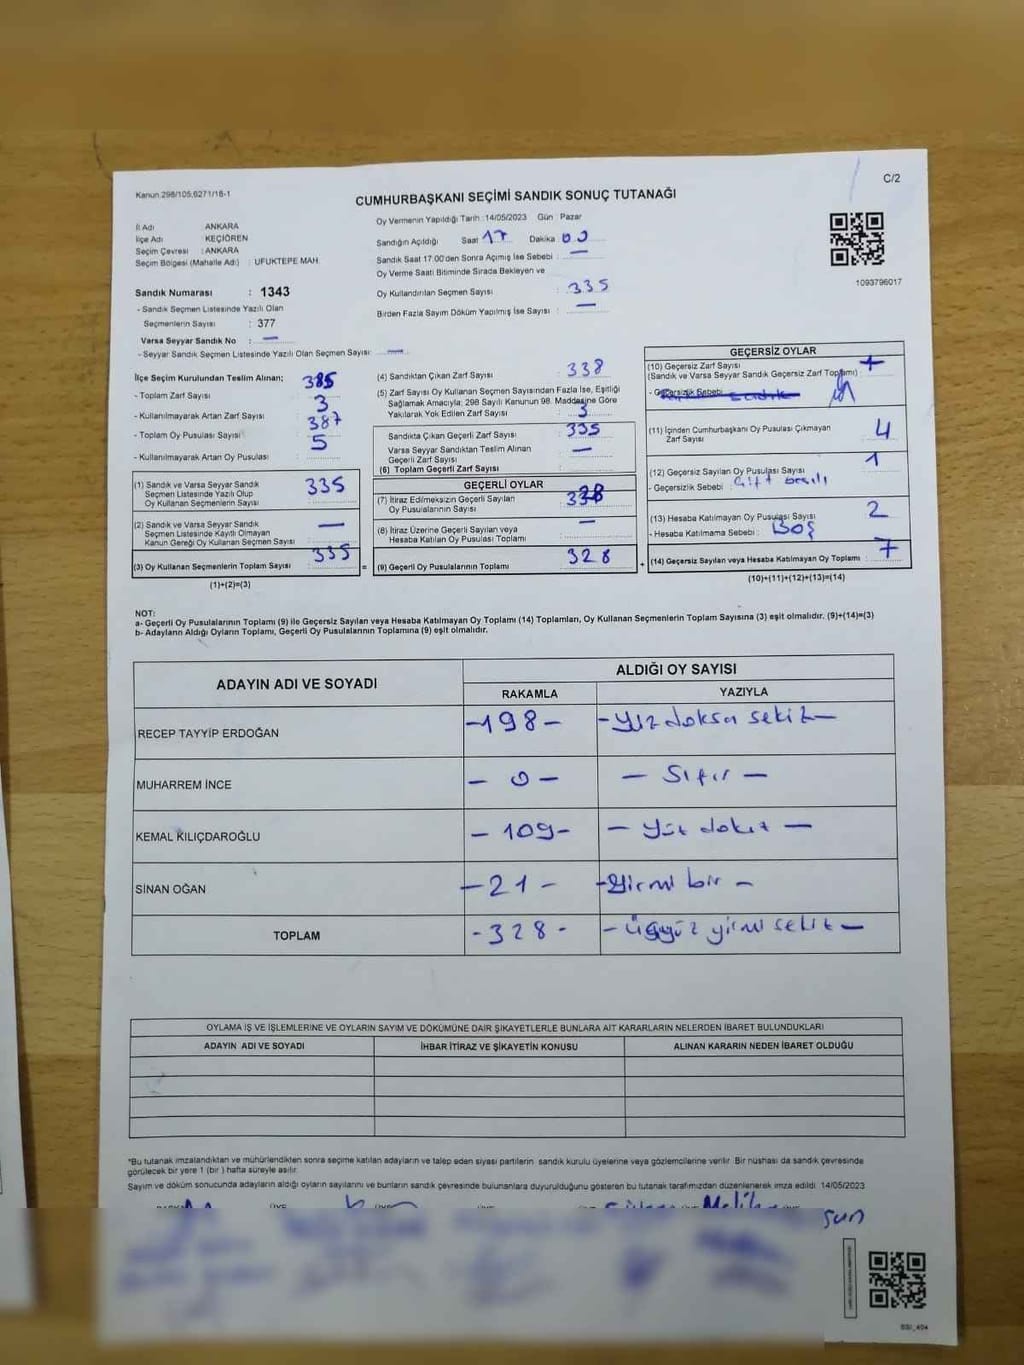 Kanun 298/105,6271/18-1
C/2
CUMHURBAŞKANI SEÇİMİ SANDIK SONUÇ TUTANAĞI
İl Adı ANKARA
İlçe Adı KEÇİÖREN
Seçim Çevresi : ANKARA
Seçim Bölgesi (Mahalle Adı) : UFUKTEPE MAH.
Sandık Numarası : 1343
- Sandık Seçmen Listesinde Yazılı Olan
Seçmenlerin Sayısı : 377
Varsa Seyyar Sandık No : —
- Seyyar Sandık Seçmen Listesinde Yazılı Olan Seçmen Sayısı —
Oy Vermenin Yapıldığı Tarih :14/05/2023 Gün : Pazar
Sandığın Açıldığı Saat 17 Dakika 00
Sandık Saat 17.00'den Sonra Açılmış İse Sebebi : —
Oy Verme Saati Bitiminde Sırada Bekleyen ve
Oy Kullandırılan Seçmen Sayısı : 335
Birden Fazla Sayım Döküm Yapılmış İse Sayısı : —
1093796017
İlçe Seçim Kurulundan Teslim Alınan;
- Toplam Zarf Sayısı 385
- Kullanılmayarak Artan Zarf Sayısı 3
- Toplam Oy Pusulası Sayısı 387
- Kullanılmayarak Artan Oy Pusulası 5
(1) Sandık ve Varsa Seyyar Sandık
Seçmen Listesinde Yazılı Olup
Oy Kullanan Seçmenlerin Sayısı 335
(2) Sandık ve Varsa Seyyar Sandık
Seçmen Listesinde Kayıtlı Olmayan
Kanun Gereği Oy Kullanan Seçmen Sayısı —
(3) Oy Kullanan Seçmenlerin Toplam Sayısı 335
(1)+(2)=(3)
(4) Sandıktan Çıkan Zarf Sayısı 338
(5) Zarf Sayısı Oy Kullanan Seçmen Sayısından Fazla İse, Eşitliği
Sağlamak Amacıyla, 298 Sayılı Kanunun 98. Maddesine Göre
Yakılarak Yok Edilen Zarf Sayısı 3
Sandıkta Çıkan Geçerli Zarf Sayısı 335
Varsa Seyyar Sandıktan Teslim Alınan
Geçerli Zarf Sayısı —
(6) Toplam Geçerli Zarf Sayısı
GEÇERLİ OYLAR
(7) İtiraz Edilmeksizin Geçerli Sayılan
Oy Pusulalarının Sayısı 328
(8) İtiraz Üzerine Geçerli Sayılan veya
Hesaba Katılan Oy Pusulası Toplamı —
= (9) Geçerli Oy Pusulalarının Toplamı 328 +
GEÇERSİZ OYLAR
(10) Geçersiz Zarf Sayısı
(Sandık ve Varsa Seyyar Sandık Geçersiz Zarf Toplamı) :
- Geçersizlik Sebebi
(11) İçinden Cumhurbaşkanı Oy Pusulası Çıkmayan
Zarf Sayısı 4
(12) Geçersiz Sayılan Oy Pusulası Sayısı 1
- Geçersizlik Sebebi : Çift basılı
(13) Hesaba Katılmayan Oy Pusulası Sayısı 2
- Hesaba Katılmama Sebebi : Boş
(14) Geçersiz Sayılan veya Hesaba Katılmayan Oy Toplamı : 7
(10)+(11)+(12)+(13)=(14)
NOT:
a- Geçerli Oy Pusulalarının Toplamı (9) ile Geçersiz Sayılan veya Hesaba Katılmayan Oy Toplamı (14) Toplamları, Oy Kullanan Seçmenlerin Toplam Sayısına (3) eşit olmalıdır. (9)+(14)=(3)
b- Adayların Aldığı Oyların Toplamı, Geçerli Oy Pusulalarının Toplamına (9) eşit olmalıdır.
ADAYIN ADI VE SOYADI ALDIĞI OY SAYISI
RAKAMLA YAZIYLA
RECEP TAYYİP ERDOĞAN -198- -Yüz doksa sekiz-
MUHARREM İNCE - 0 - - Sıfır -
KEMAL KILIÇDAROĞLU - 109- - Yüz dokuz -
SİNAN OĞAN -21- -Yirmi bir -
TOPLAM -328- - üçyüz yirmi sekiz -
OYLAMA İŞ VE İŞLEMLERİNE VE OYLARIN SAYIM VE DÖKÜMÜNE DAİR ŞİKAYETLERLE BUNLARA AİT KARARLARIN NELERDEN İBARET BULUNDUKLARI
ADAYIN ADI VE SOYADI İHBAR İTİRAZ VE ŞİKAYETİN KONUSU ALINAN KARARIN NEDEN İBARET OLDUĞU
*Bu tutanak imzalandıktan ve mühürlendikten sonra seçime katılan adayların ve talep eden siyasi partilerin sandık kurulu üyelerine veya gözlemcilerine verilir. Bir nüshası da sandık çevresinde
görülecek bir yere 1 (bir) hafta süreyle asılır.
Sayım ve döküm sonucunda adayların aldığı oyların sayılarını ve bunların sandık çevresinde bulunanlara duyurulduğunu gösteren bu tutanak tarafımızdan düzenlenerek imza edildi. 14/05/2023